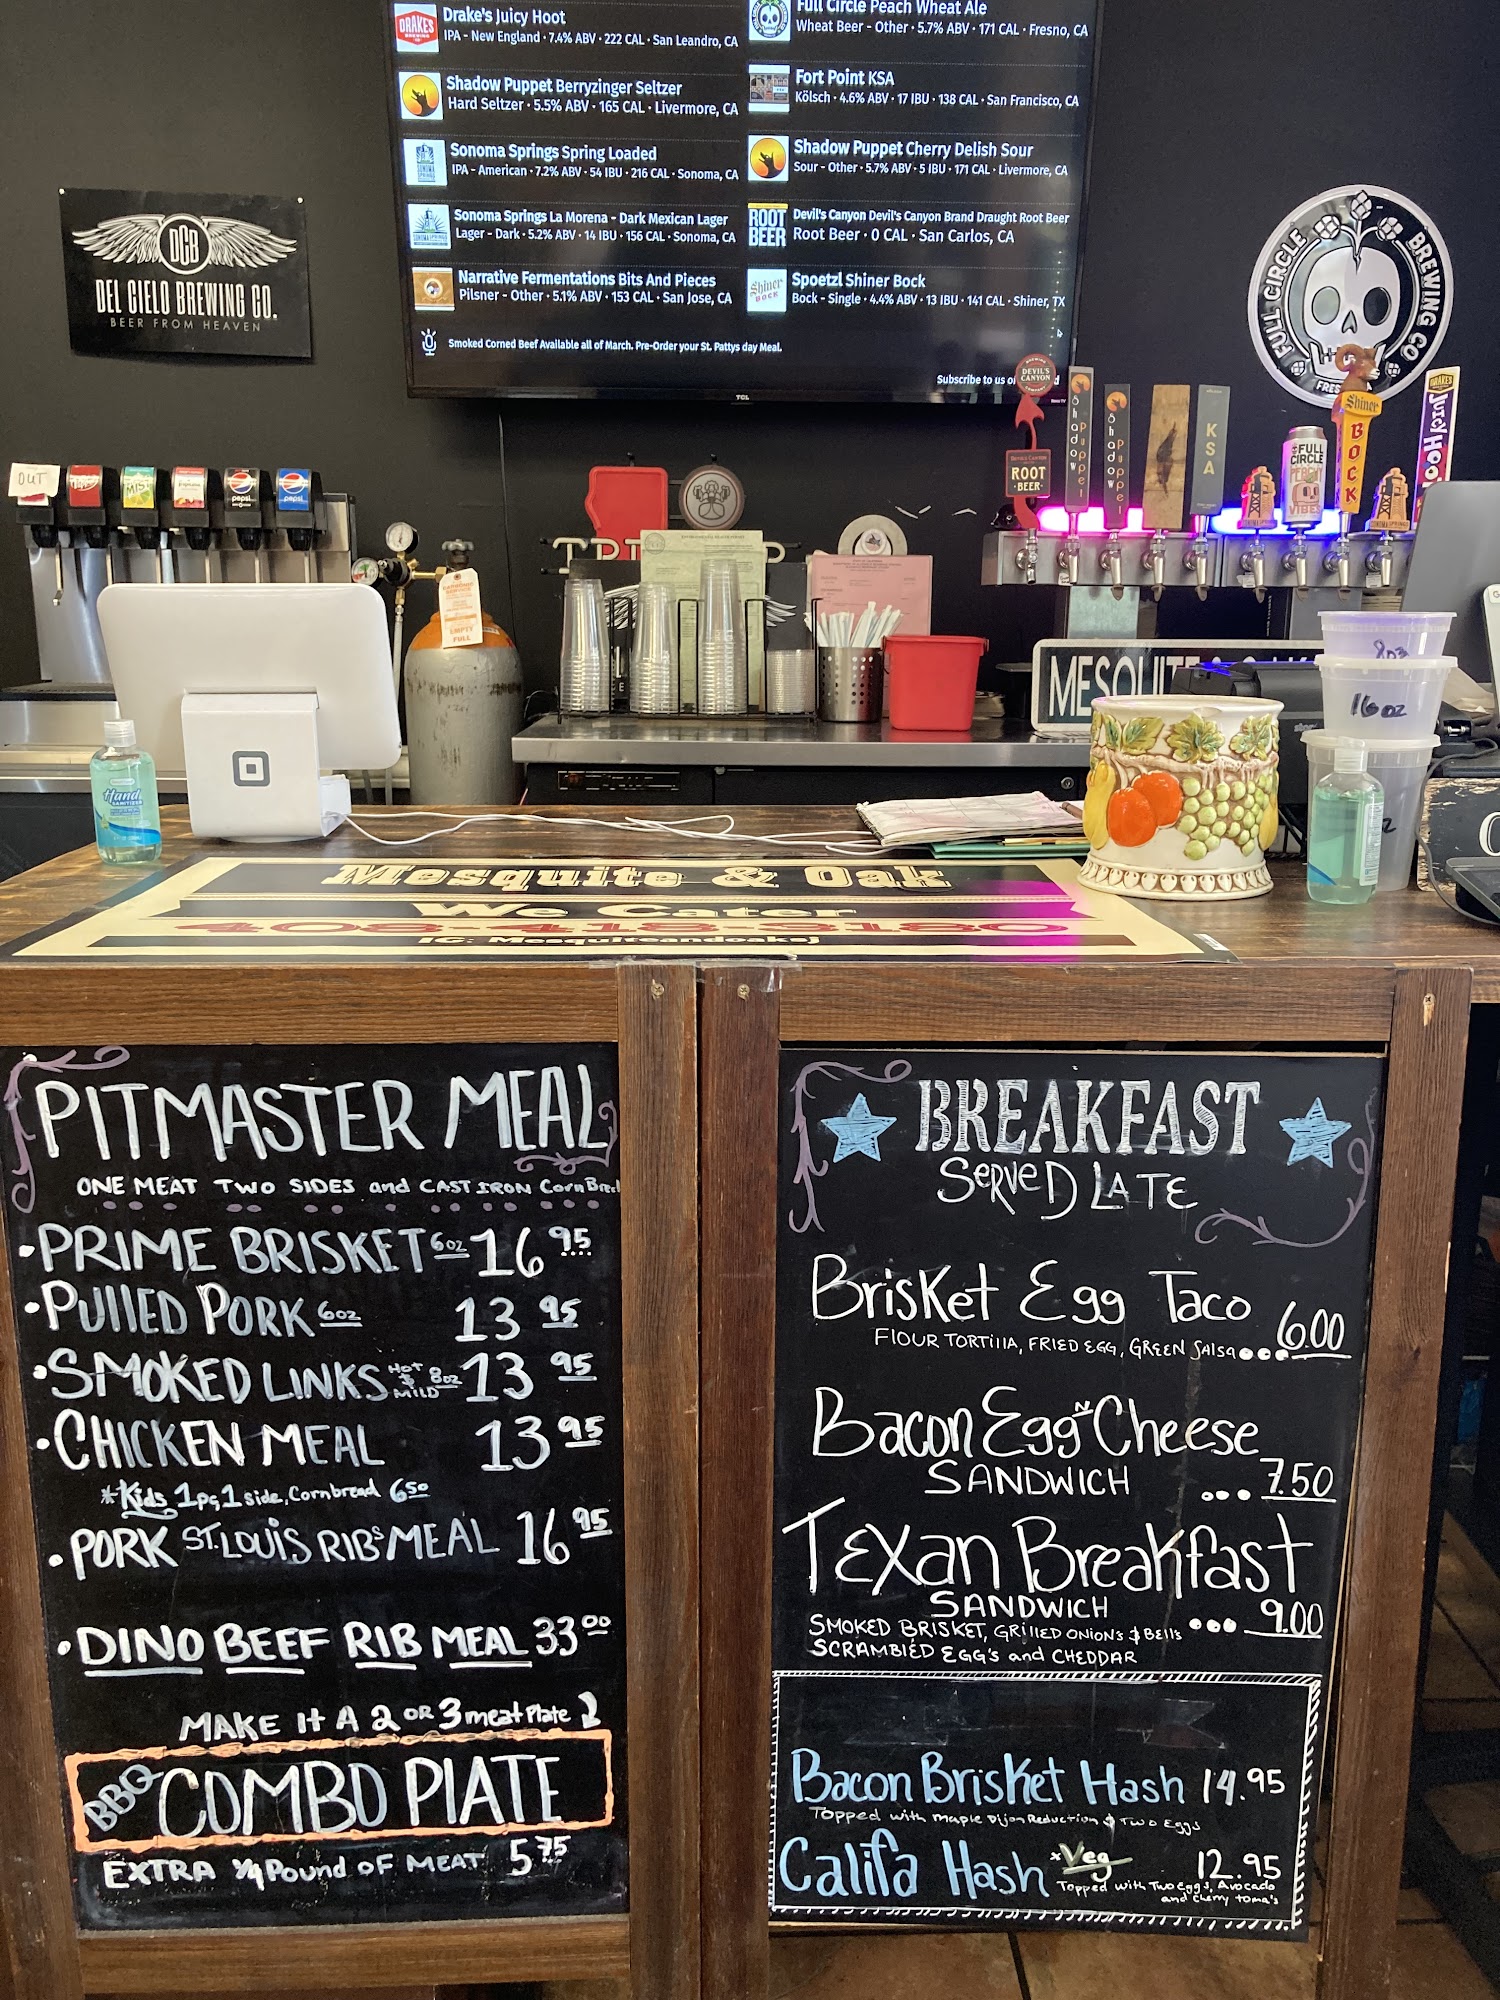 Drake's Juicy Hoot
IPA - New England • 7.4% ABV • 222 CAL • San Leandro, CA
Shadow Puppet Berryzinger Seltzer
Hard Seltzer • 5.5% ABV • 165 CAL • Livermore, CA
Sonoma Springs Spring Loaded
IPA - American • 7.2% ABV • 54 IBU • 216 CAL • Sonoma, CA
Sonoma Springs La Morena - Dark Mexican Lager
Lager - Dark • 5.2% ABV • 14 IBU • 156 CAL • Sonoma, CA
Narrative Fermentations Bits And Pieces
Pilsner - Other • 5.1% ABV • 153 CAL • San Jose, CA
Full Circle Peach Wheat Ale
Wheat Beer - Other • 5.7% ABV • 171 CAL • Fresno, CA
Fort Point KSA
Kölsch • 4.6% ABV • 17 IBU • 138 CAL • San Francisco, CA
Shadow Puppet Cherry Delish Sour
Sour - Other • 5.7% ABV • 5 IBU • 171 CAL • Livermore, CA
ROOT
BEER
Devil's Canyon Devil's Canyon Brand Draught Root Beer
Root Beer • 0 CAL • San Carlos, CA
Shiner
BOCK
Spoetzl Shiner Bock
Bock - Single • 4.4% ABV • 13 IBU • 141 CAL • Shiner, TX
Smoked Corned Beef Available all of March. Pre-Order your St. Pattys day Meal.
Subscribe to us
TCL
DRAKES
DCB
DEL CIELO BREWING CO.
BEER FROM HEAVEN
FULL CIRCLE BREWING CO
OUT
MIST
pepsi
pepsi
DEVIL'S CANYON
ROOT
BEER
Shadow Puppet
Shadow Puppet
KSA
FULL
CIRCLE
VIBES
Shiner
BOCK
DRAKES
JUICY HOOT
EMPTY
FULL
MESQUITE
8oz
16oz
Hand
SANITIZER
Mesquite & Oak
We Cater
408-418-3180
IG: Mesquiteandoaksj
PITMASTER MEAL
ONE MEAT TWO SIDES and CAST IRON CornBread
• PRIME BRISKET 6oz 16 95
• PULLED PORK 6oz 13 95
• SMOKED LINKS HOT $ MILD 8oz 13 95
• CHICKEN MEAL 13 95
*Kids 1pc, 1 side, Cornbread 6 50
• PORK ST. LOUIS RIBS MEAL 16 95
• DINO BEEF RIB MEAL 33 00
MAKE IT A 2 OR 3 meat Plate
BBQ COMBO PLATE
EXTRA 1/4 Pound OF MEAT 5 75
BREAKFAST
SERVED LATE
Brisket Egg Taco 6.00
FLOUR TORTILLA, FRIED EGG, GREEN SALSA
Bacon Egg N Cheese
SANDWICH ... 7.50
TEXan Breakfast
SANDWICH ... 9.00
SMOKED BRISKET, GRILLED ONIONS $ BELLS
SCRAMBLED EGG'S and CHEDDAR
Bacon Brisket Hash 14.95
Topped with maple Dijon Reduction & Two Eggs
Califa Hash *Veg 12.95
Topped with Two eggs, Avocado
and cherry toma's